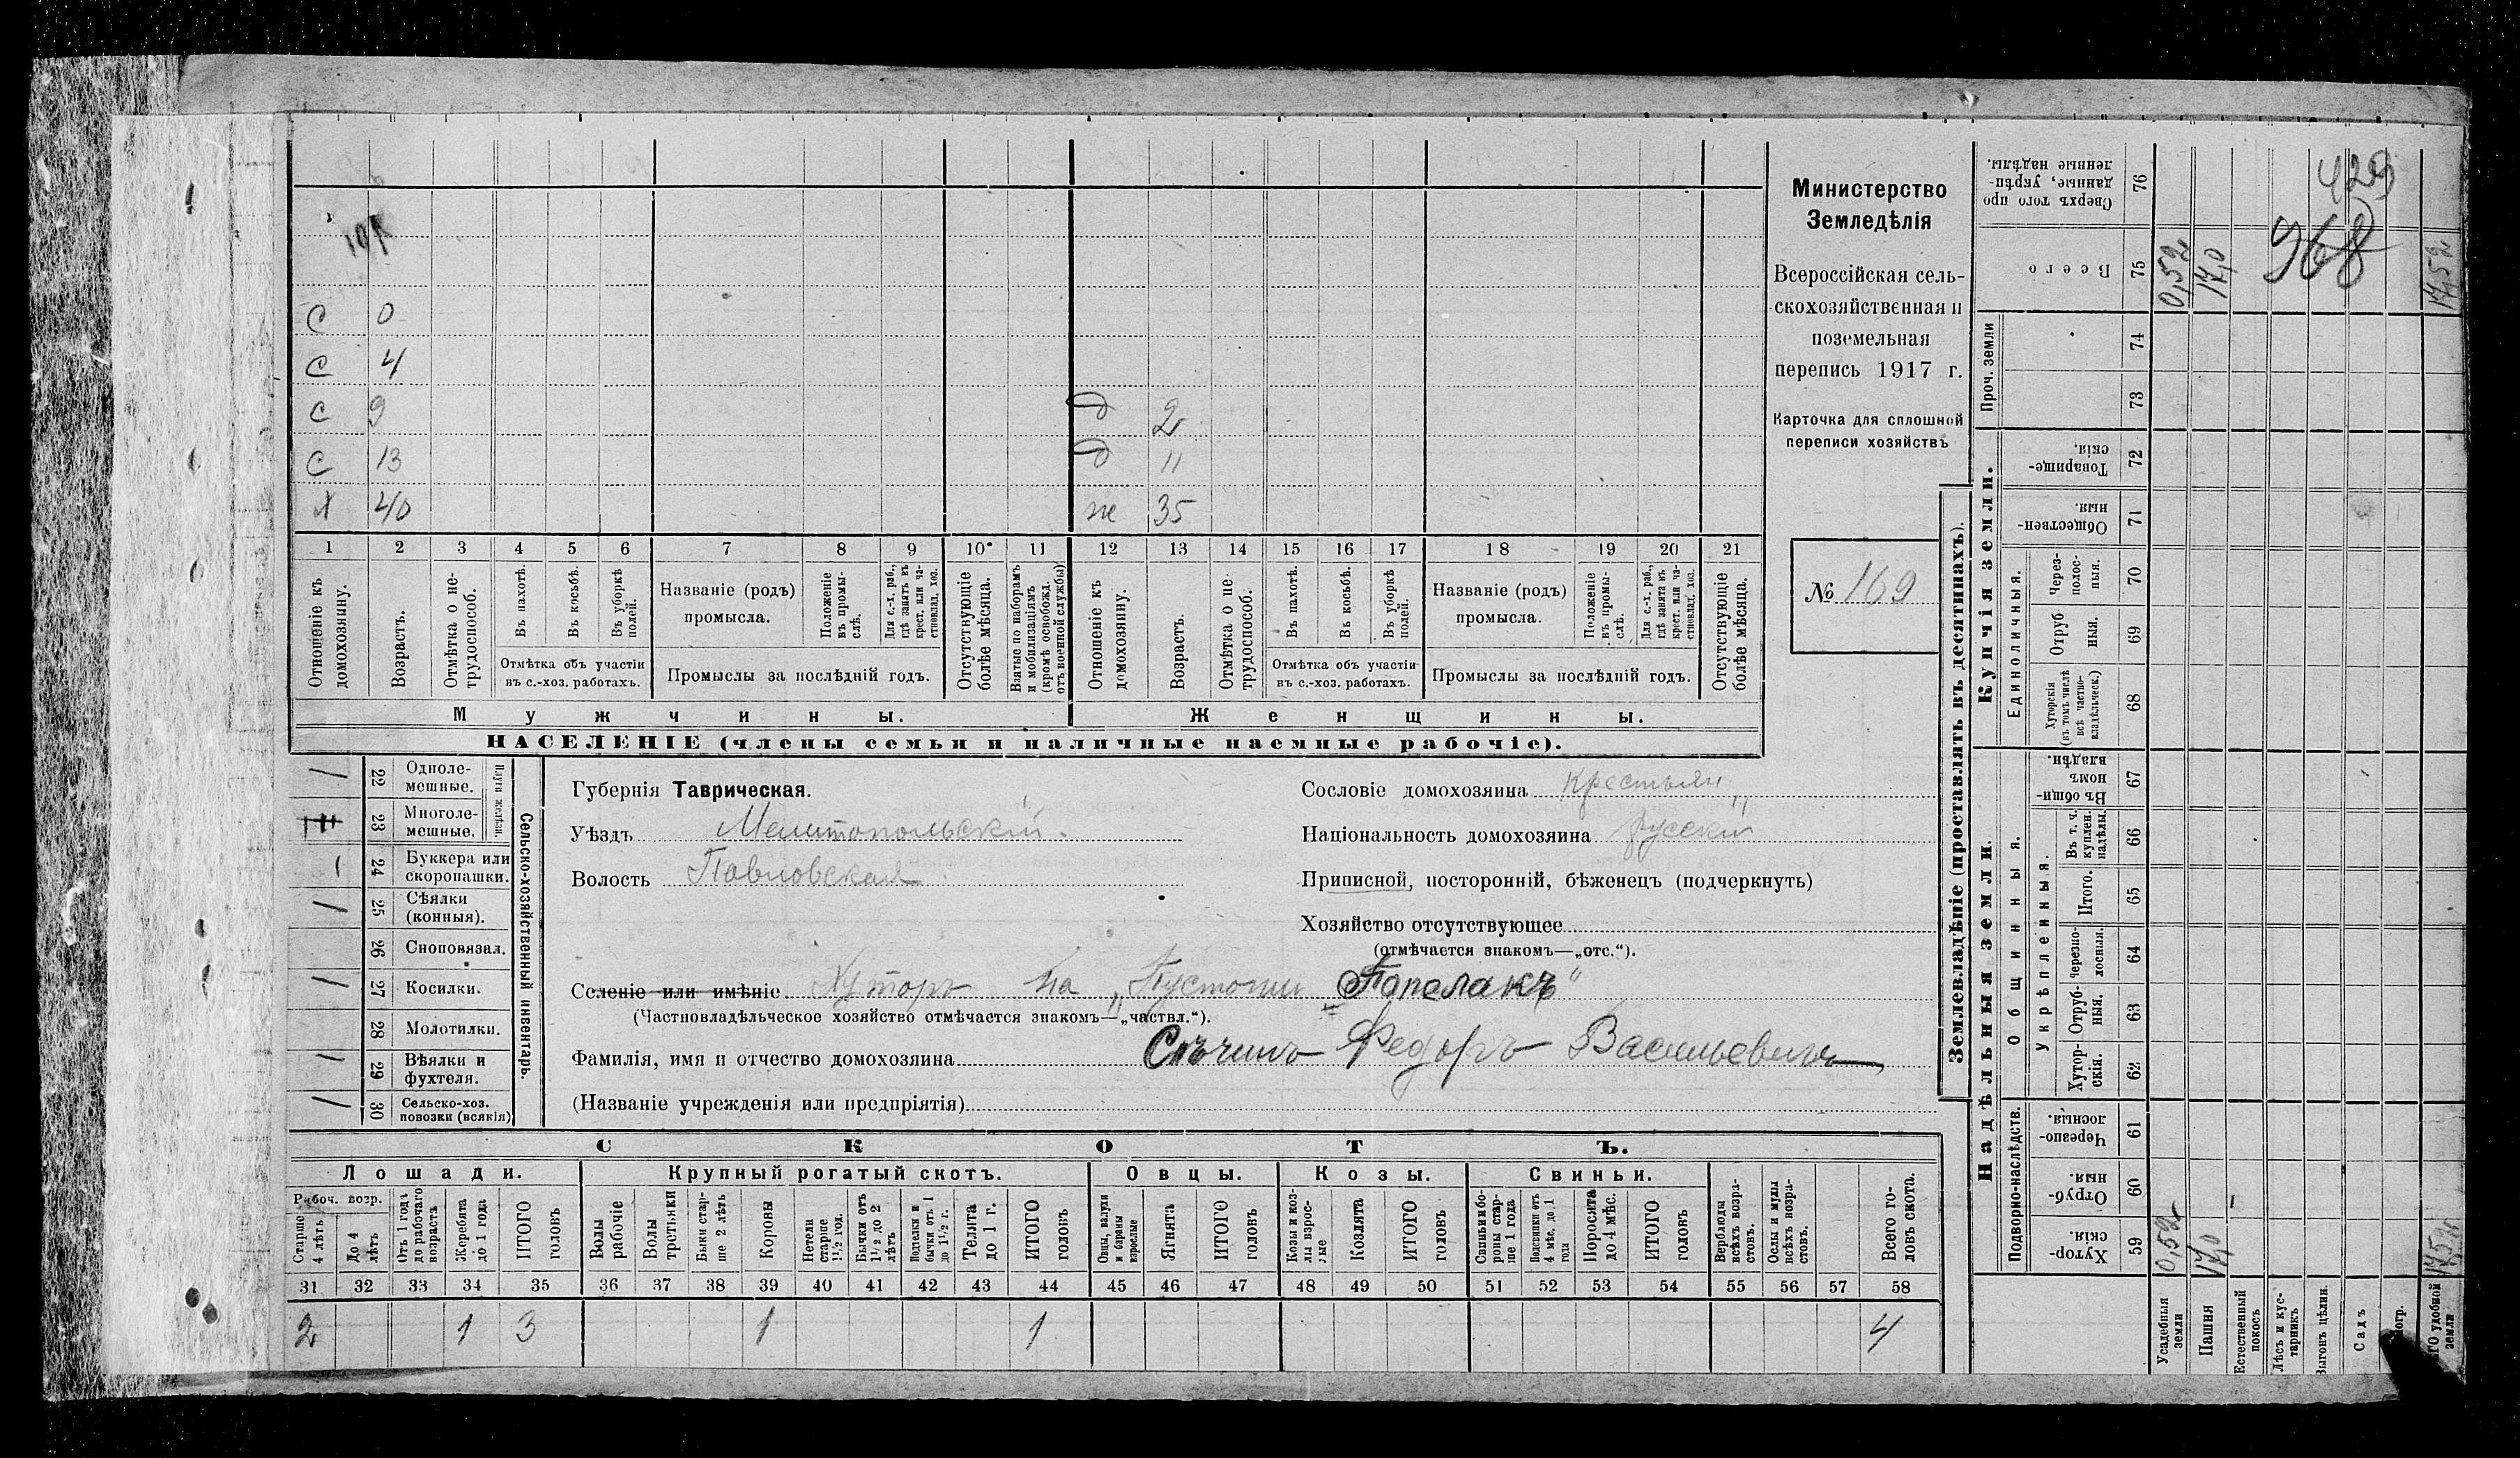 429
968
С 0
С 4
С 9 д 2
С 13 д 11
Х 40 ж 35
1 2 3 4 5 6 7 8 9 10 11 12 13 14 15 16 17 18 19 20 21
Отношеніе къ домохозяину.
Возрастъ.
Отмѣтка о не-
трудоспособ.
Въ пахотѣ.
Въ косьбѣ.
Въ уборкѣ
полей.
Отмѣтка объ участіи
въ с.-хоз. работахъ.
Названіе (родъ)
промысла.
Положеніе
въ промы-
слѣ.
Для с.-х. раб.,
гдѣ занятъ въ
крест. или ча-
стновлад. хоз.
Промыслы за послѣдній годъ.
Отсутствующіе
болѣе мѣсяца.
Взятые по наборамъ
и мобилизаціямъ
(кромѣ освобожд.
отъ военной службы)
Отношеніе къ
домохозяину.
Возрастъ.
Отмѣтка о не-
трудоспособ.
Въ пахотѣ.
Въ косьбѣ.
Въ уборкѣ
полей.
Отмѣтка объ участіи
въ с.-хоз. работахъ.
Названіе (родъ)
промысла.
Положеніе
въ промы-
слѣ.
Для с.-х. раб.,
гдѣ занята въ
крест. или ча-
стновлад. хоз.
Промыслы за послѣдній годъ.
Отсутствующіе
болѣе мѣсяца.
Мужчины.
Женщины.
НАСЕЛЕНІЕ (члены семьи и наличные наемные рабочіе).
Министерство
Земледѣлія
Всероссійская сель-
скохозяйственная и
поземельная
перепись 1917 г.
Карточка для сплошной
переписи хозяйствъ
№ 169
Сельско-хозяйственный инвентарь.
Плуги желѣзн.
22 Одноле-
мешные.
23 Многоле-
мешные.
24 Буккера или
скоропашки.
25 Сѣялки
(конныя).
26 Сноповязал.
27 Косилки.
28 Молотилки.
29 Вѣялки и
фухтеля.
30 Сельско-хоз.
повозки (всякія)
Губернія Таврическая.
Уѣздъ Мелитопольскій.
Волость Павловская
Сословіе домохозяина крестьян.
Національность домохозяина русскій
Приписной, посторонній, бѣженецъ (подчеркнуть)
Хозяйство отсутствующее
(отмѣчается знакомъ—„отс.“).
Селеніе или имѣніе Хуторъ на „Пустоши Папелакъ“
(Частновладѣльческое хозяйство отмѣчается знакомъ—„частвл.“).
Фамилія, имя и отчество домохозяина Федоръ Васильевичъ
(Названіе учрежденія или предпріятія)
СКОТЪ.
Лошади. Крупный рогатый скотъ. Овцы. Козы. Свиньи.
Рабоч. возр.
Старше
4 лѣтъ
До 4
лѣтъ
Отъ 1 года
до рабочаго
возраста
Жеребята
до 1 года
ИТОГО
головъ
Волы
рабочіе
Волы
третьяки
Быки стар-
ше 2 лѣтъ
Коровы
Нетели
старше
1½ год.
Бычки отъ
1½ до 2
лѣтъ
Подтелки и
бычки отъ 1
до 1½ г.
Телята
до 1 г.
ИТОГО
головъ
Овцы, валухи
и бараны
взрослые
Ягнята
ИТОГО
головъ
Козы и коз-
лы взрос-
лые
Козлята
ИТОГО
головъ
Свиньи и бо-
ровы стар-
ше 1 года
Подсвинки отъ
4 мѣс. до 1
года
Поросята
до 4 мѣс.
ИТОГО
головъ
Верблюды
всѣхъ возра-
стовъ.
Ослы и мулы
всѣхъ возра-
стовъ.
Всего го-
ловъ скота.
31 32 33 34 35 36 37 38 39 40 41 42 43 44 45 46 47 48 49 50 51 52 53 54 55 56 57 58
2 1 3 1 1 4
Землевладѣніе (проставлять въ десятинахъ).
Купчія земли.
Надѣльныя земли.
Сверхъ того про
данные, укрѣп-
ленные надѣлы. 76
Всего 75 0,52 17,0 17,52
Проч. земли 74 73
Товарище-
скія. 72
Обществен-
ныя. 71
Единоличныя.
Через-
полос-
ныя. 70
Отруб
ныя. 69
Хуторскія
(въ томъ числѣ
всѣ частно-
владѣльческ.) 68
Общинныя.
Въ общи-
номъ
владѣн. 67
Укрѣпленныя.
Въ т. ч.
куплен.
надѣлы. 66
Итого. 65
Черезпо-
лосныя. 64
Отруб-
ныя. 63
Хутор-
скія. 62
Подворно-наслѣдств.
Черезпо-
лосныя. 61
Отруб-
ныя. 60
Хутор-
скія. 59 0,52 17,0 17,52
Усадебныя
земли
Пашня
Естественный
покосъ
Лѣсъ и кус-
тарникъ
Выгонъ цѣлин.
Садъ
удобной
земли